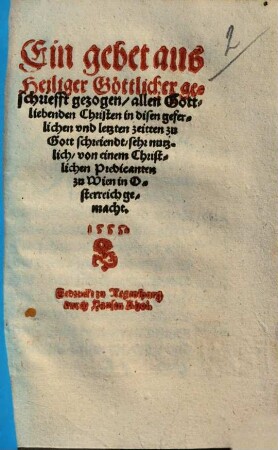 2
Ein gebet aus
Heiliger Göttlicher ge-
schriefft gezogen/ allen Gott-
liebenden Christen in disen gefer-
lichen vnd letzten zeitten zu
Gott schreiendt/ sehr nutz-
lich/ von einem Christ-
lichen Predicanten
zu Wien in O-
sterreich ge-
macht.
155
Gedruckt zu Regenspurg
durch Hansen Khol.